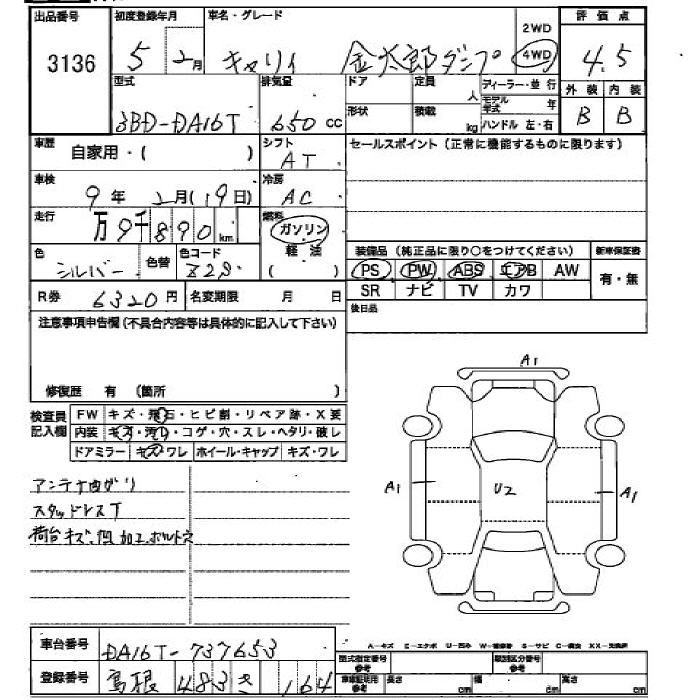 出品番号 初度登録年月 車名・グレード 2WD 評価点
3136 5 2月 キャリィ 金太郎ダンプ 4WD 4.5
型式 排気量 ドア 定員 人 ディーラー・並行 外装 内装
3BD-DA16T 650 cc 形状 積載 kg モデル年式 年 B B
ハンドル 左・右
車歴 自家用・( ) シフト AT セールスポイント(正常に機能するものに限ります)
車検 9年 2月(19日) 冷房 AC
走行 万 9千890 km 燃料 ガソリン
軽油
( )
色 シルバー 色替 色コード Z2S 装備品(純正品に限り○をつけてください) 新車保証書
PS PW ABS エアB AW 有・無
R券 6320円 名変期限 月 日 SR ナビ TV カワ
注意事項申告欄(不具合内容等は具体的に記入して下さい) 後日品
修復歴 有 (箇所 )
検査員記入欄 FW キズ・飛石・ヒビ割・リペア跡・X要
内装 キズ・汚れ・コゲ・穴・スレ・ヘタリ・破レ
ドアミラー キズ・ワレ ホイール・キャップ キズ・ワレ
A1
A1 U2 A1
アンテナ曲がり
スタッドレスT
荷台キズ、凹 加工、ボルト穴
車台番号 DA16T-737653
A-キズ E-エクボ U-凹み W-補修跡 S-サビ C-腐食 XX-交換済
型式指定番号 参考 類別区分番号 参考
登録番号 島根 483 き 164
車庫証明用 参考 長さ cm 幅 cm 高さ cm